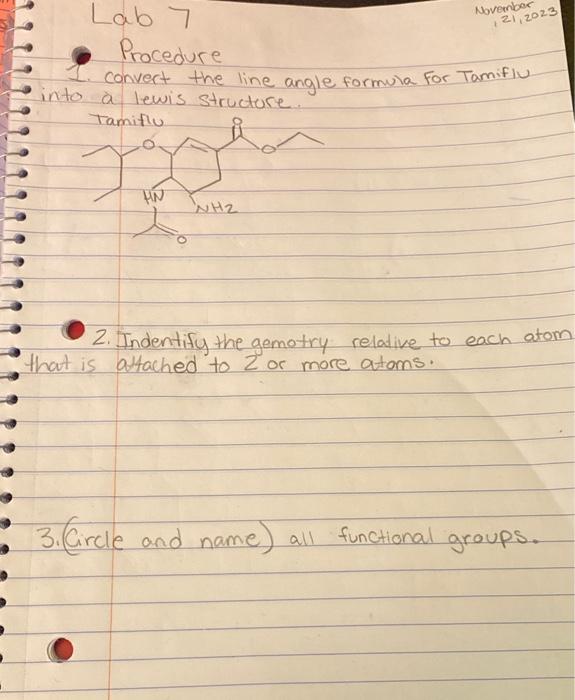 Lab 7
November
, 21, 2023
Procedure
1. convert the line angle formula for Tamiflu
into a lewis structure.
Tamiflu
O
O
O
HN
NH2
O
2. Indentify the gemotry relative to each atom
that is attached to 2 or more atoms.
3. (Circle and name) all functional groups.